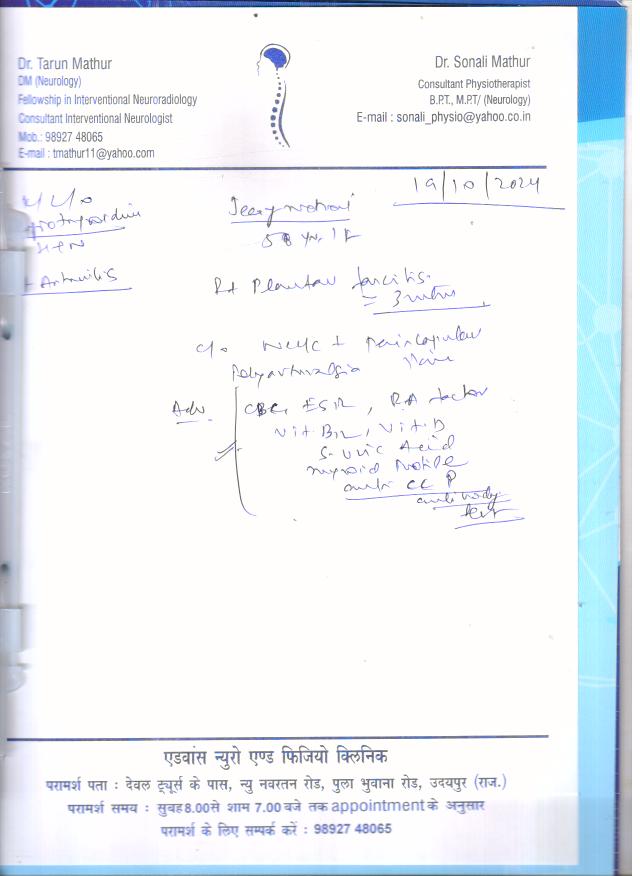 Dr. Tarun Mathur
DM (Neurology)
Fellowship in Interventional Neuroradiology
Consultant Interventional Neurologist
Mob.: 98927 48065
E-mail : tmathur11@yahoo.com
Dr. Sonali Mathur
Consultant Physiotherapist
B.P.T., M.P.T/ (Neurology)
E-mail : sonali_physio@yahoo.co.in
19/10/2024
HTN
Arthritis
58 yr. / F
Rt Plantar fascitis.
= 3 mths
c/o
Polyarthralgia Pain
Adv
CBC, ESR, RA factor
Vit B12, Vit. D
S. Uric Acid
Thyroid Profile
anti CCP
antibody
test
एडवांस न्युरो एण्ड फिजियो क्लिनिक
परामर्श पता : देवल ट्यूर्स के पास, न्यु नवरतन रोड, पुला भुवाना रोड, उदयपुर (राज.)
परामर्श समय : सुबह 8.00 से शाम 7.00 बजे तक appointment के अनुसार
परामर्श के लिए सम्पर्क करें : 98927 48065